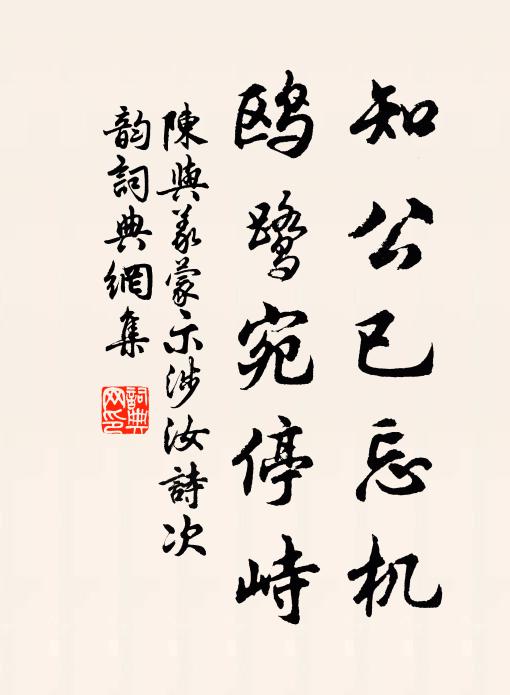 知公已忘机
鸥鹭宛停峙
陳與义蒙示涉汝詩次
韵詞典網集
詞典
网印